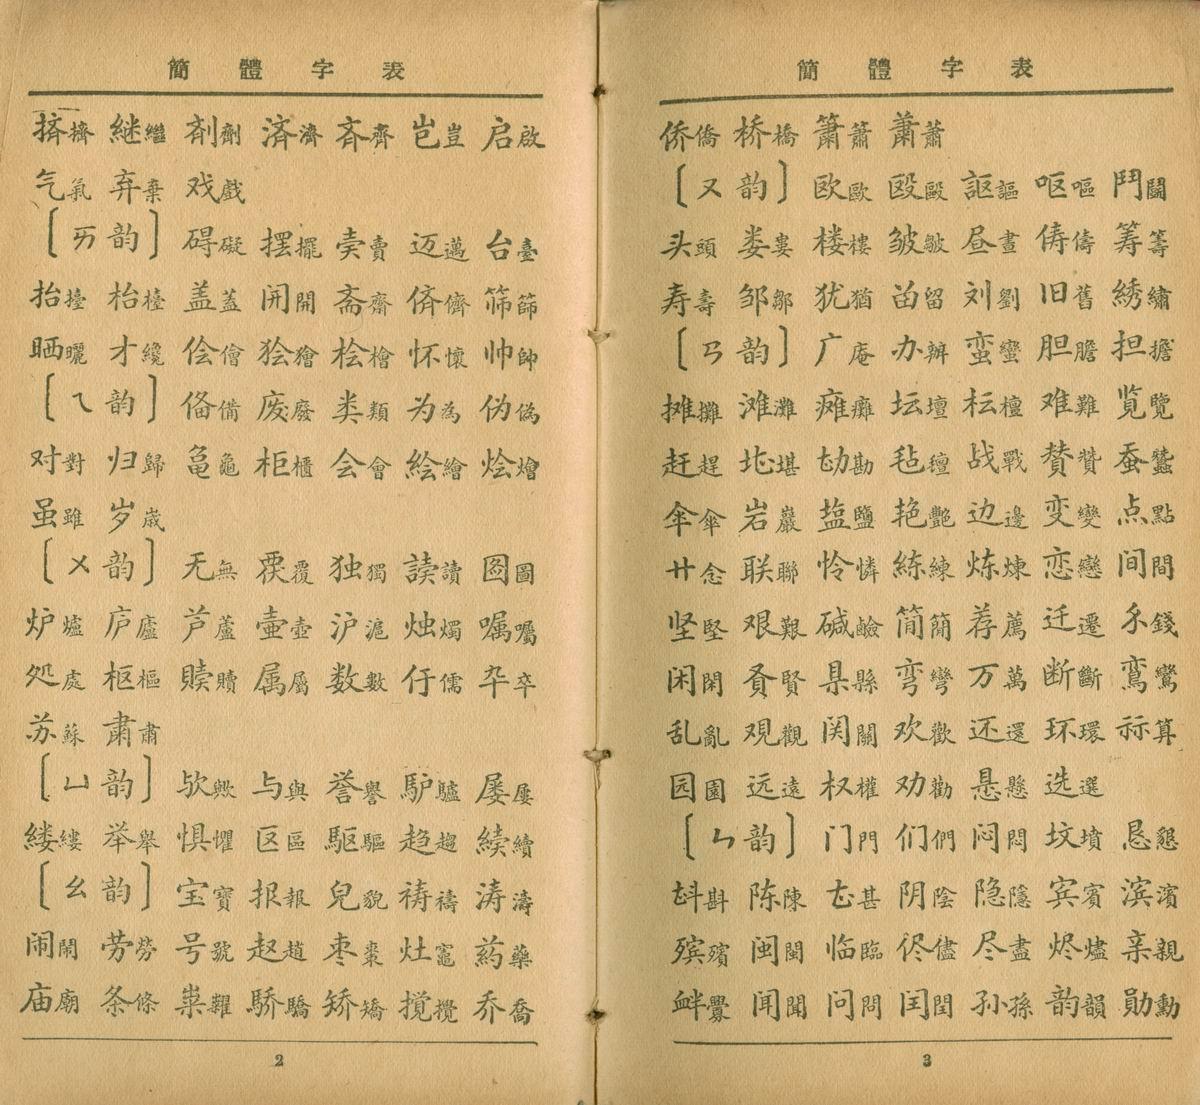 簡體字表
挤擠 継繼 剤劑 済濟 斉齊 岂豈 启啟
气氣 弃棄 戏戲
〔ㄞ韵〕 碍礙 摆擺 卖賣 迈邁 台臺
抬擡 枱檯 盖蓋 开開 斋齋 侪儕 筛篩
晒曬 才纔 侩儈 狯獪 桧檜 怀懷 帅帥
〔ㄟ韵〕 俻備 废廢 类類 为為 伪偽
对對 归歸 龟龜 柜櫃 会會 絵繪 烩燴
虽雖 岁歲
〔ㄨ韵〕 无無 覆 独獨 読讀 图圖
炉爐 庐廬 芦蘆 壶壺 沪滬 烛燭 嘱囑
処處 枢樞 赎贖 属屬 数數 伃儒 卆卒
苏蘇 肃肅
〔ㄩ韵〕 欤歟 与與 誉譽 馿驢 屡屢
缕縷 举舉 惧懼 区區 駆驅 趋趨 続續
〔ㄠ韵〕 宝寶 报報 皃貌 祷禱 涛濤
闹鬧 劳勞 号號 赵趙 枣棗 灶竈 药藥
庙廟 条條 粜糶 骄驕 矫矯 搅攪 乔喬
2
簡體字表
侨僑 桥橋 箫簫 萧蕭
〔ㄡ韵〕 欧歐 殴毆 謳 呕嘔 鬥鬭
头頭 娄婁 楼樓 皱皺 昼晝 俦儔 筹籌
寿壽 邹鄒 犹猶 畄留 刘劉 旧舊 綉繡
〔ㄢ韵〕 广庵 办辦 蛮蠻 胆膽 担擔
摊攤 滩灘 瘫癱 坛壇 枟檀 难難 览覽
赶趕 堪 勘 毡氈 战戰 赞贊 蚕蠶
伞傘 岩巖 盐鹽 艳艷 边邊 变變 点點
廿念 联聯 怜憐 練練 炼煉 恋戀 间間
坚堅 艰艱 碱鹼 简簡 荐薦 迁遷 錢
闲閑 贤賢 県縣 弯彎 万萬 断斷 鸾鸞
乱亂 观觀 関關 欢歡 还還 环環 祘算
园園 远遠 权權 劝勸 悬懸 选選
〔ㄣ韵〕 门門 们們 闷悶 坟墳 恳懇
斟 陈陳 甚 阴陰 隐隱 宾賓 滨濱
殡殯 闽閩 临臨 侭儘 尽盡 烬燼 亲親
衅釁 闻聞 问問 闰閏 孙孫 韵韻 勋勳
3